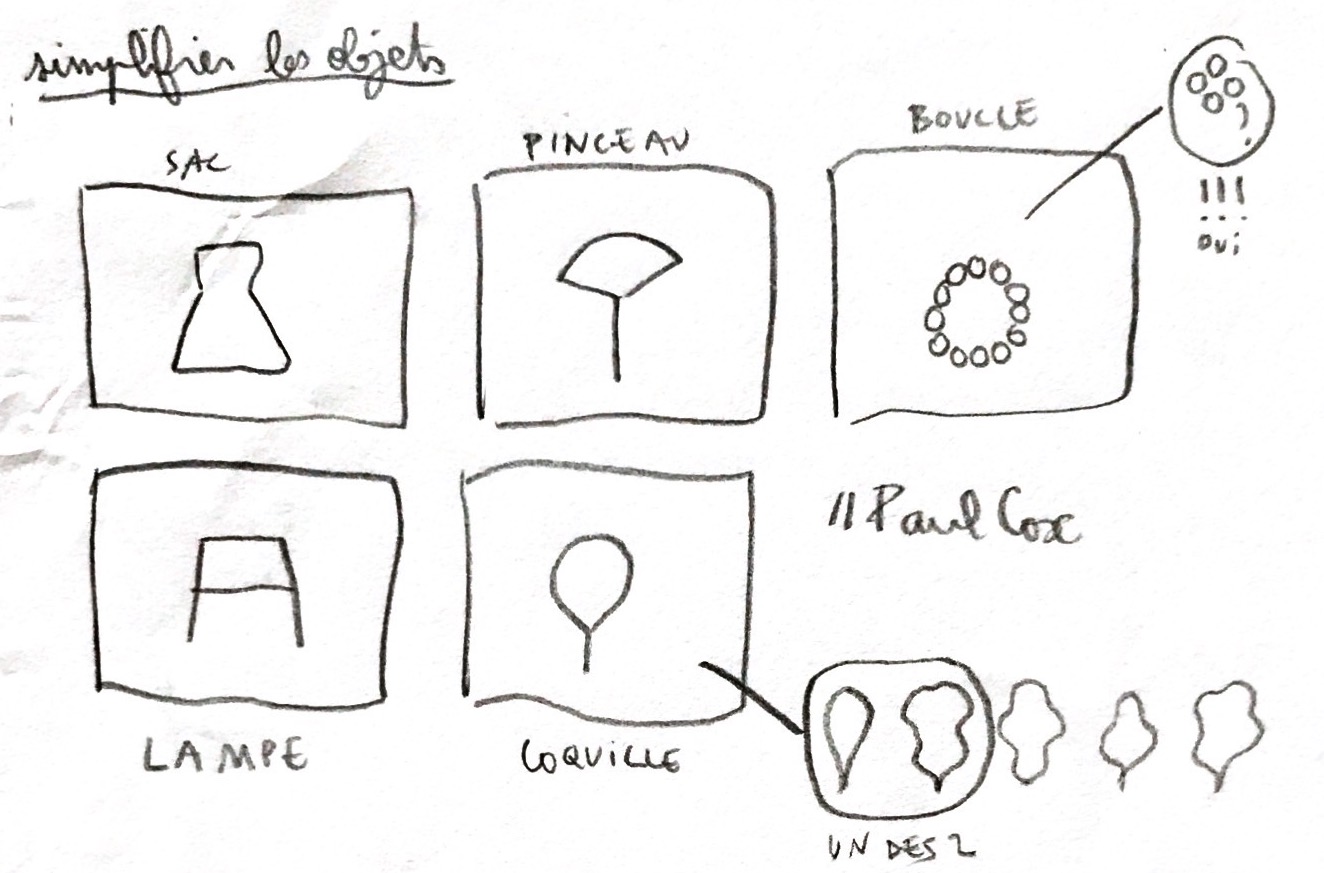 simplifier les objets
SAC
PINCEAU
BOUCLE
?
!!!
...
oui
// Paul Cox
LAMPE
COQUILLE
UN DES 2